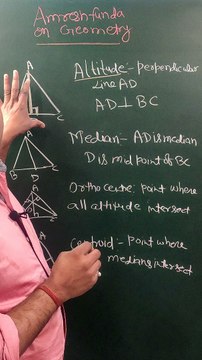 Amrosh-funda
on Geometry
Altitude:- perpendicular
Line AD
AD⊥ BC
Median- AD is median
D is midpoint of BC
Orthocentre: point where
all altitude intersect
Centroid- point where
medians intersect
A
C
A
B D C
A
C
A
C